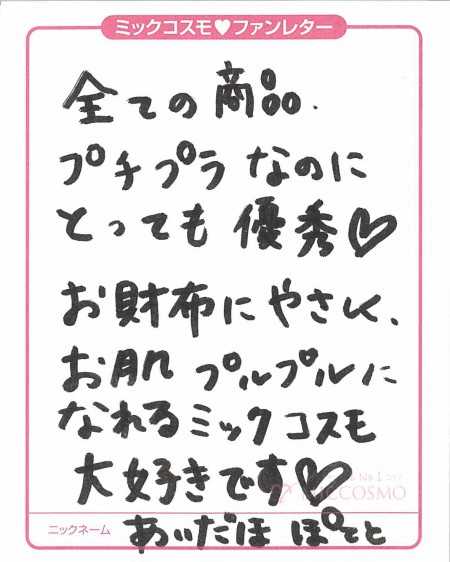 ミックコスモ♥ファンレター
全ての商品、
プチプラなのに
とっても優秀♡
お財布にやさしく、
お肌プルプルに
なれるミックコスモ
大好きです♡
No1
MICCOSMO
ニックネーム あいだほ ぽてと